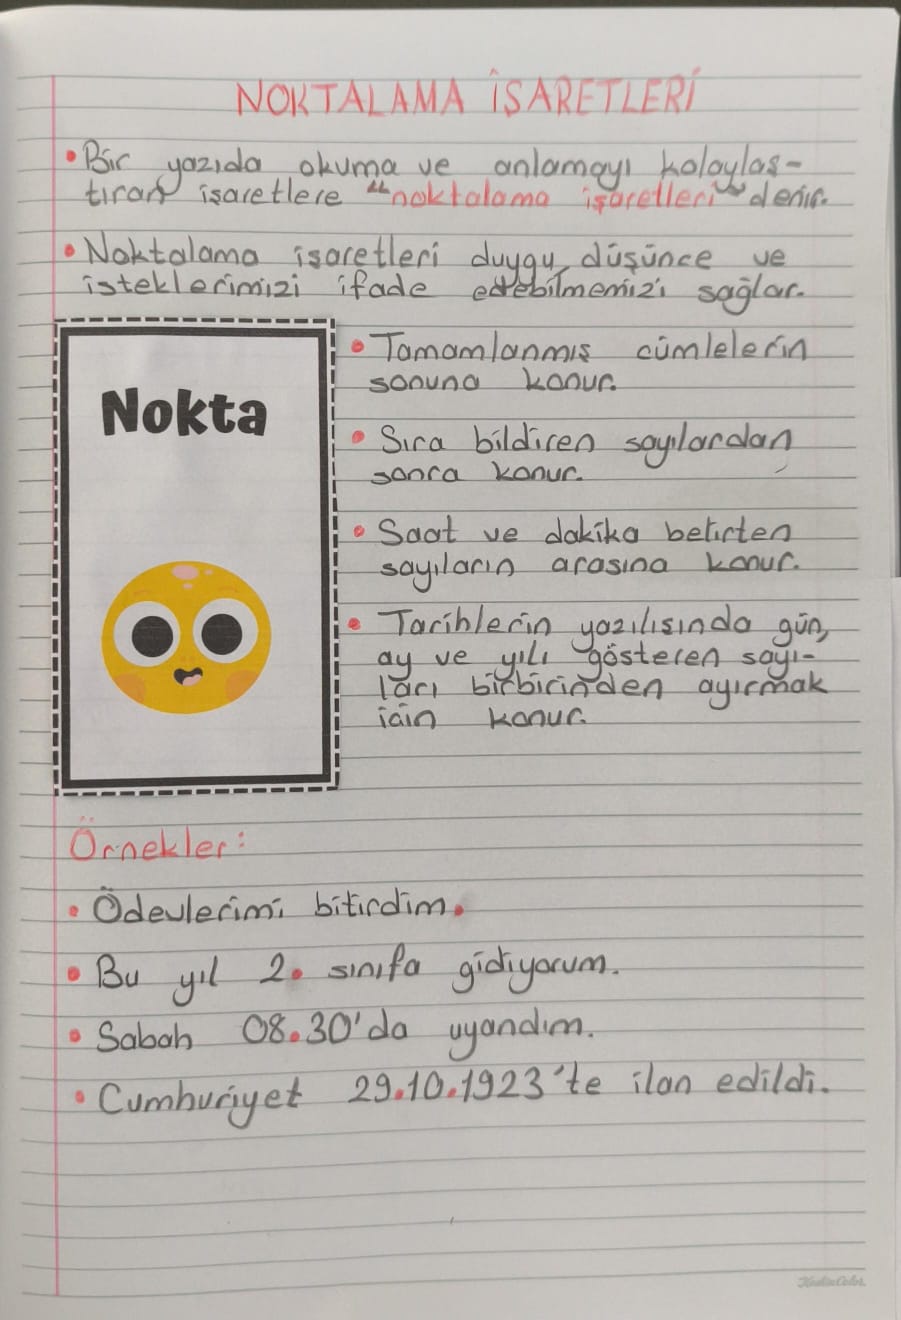 NOKTALAMA İŞARETLERİ
• Bir yazıda okuma ve anlamayı kolaylaş-
tıran işaretlere "noktalama işaretleri" denir.
• Noktalama işaretleri duygu, düşünce ve
isteklerimizi ifade edebilmemizi sağlar.
Nokta
• Tamamlanmış cümlelerin
sonuna konur.
• Sıra bildiren sayılardan
sonra konur.
• Saat ve dakika belirten
sayıların arasına konur.
• Tarihlerin yazılışında gün,
ay ve yılı gösteren sayı-
ları birbirinden ayırmak
için konur.
Örnekler:
• Ödevlerimi bitirdim.
• Bu yıl 2. sınıfa gidiyorum.
• Sabah 08.30'da uyandım.
• Cumhuriyet 29.10.1923'te ilan edildi.